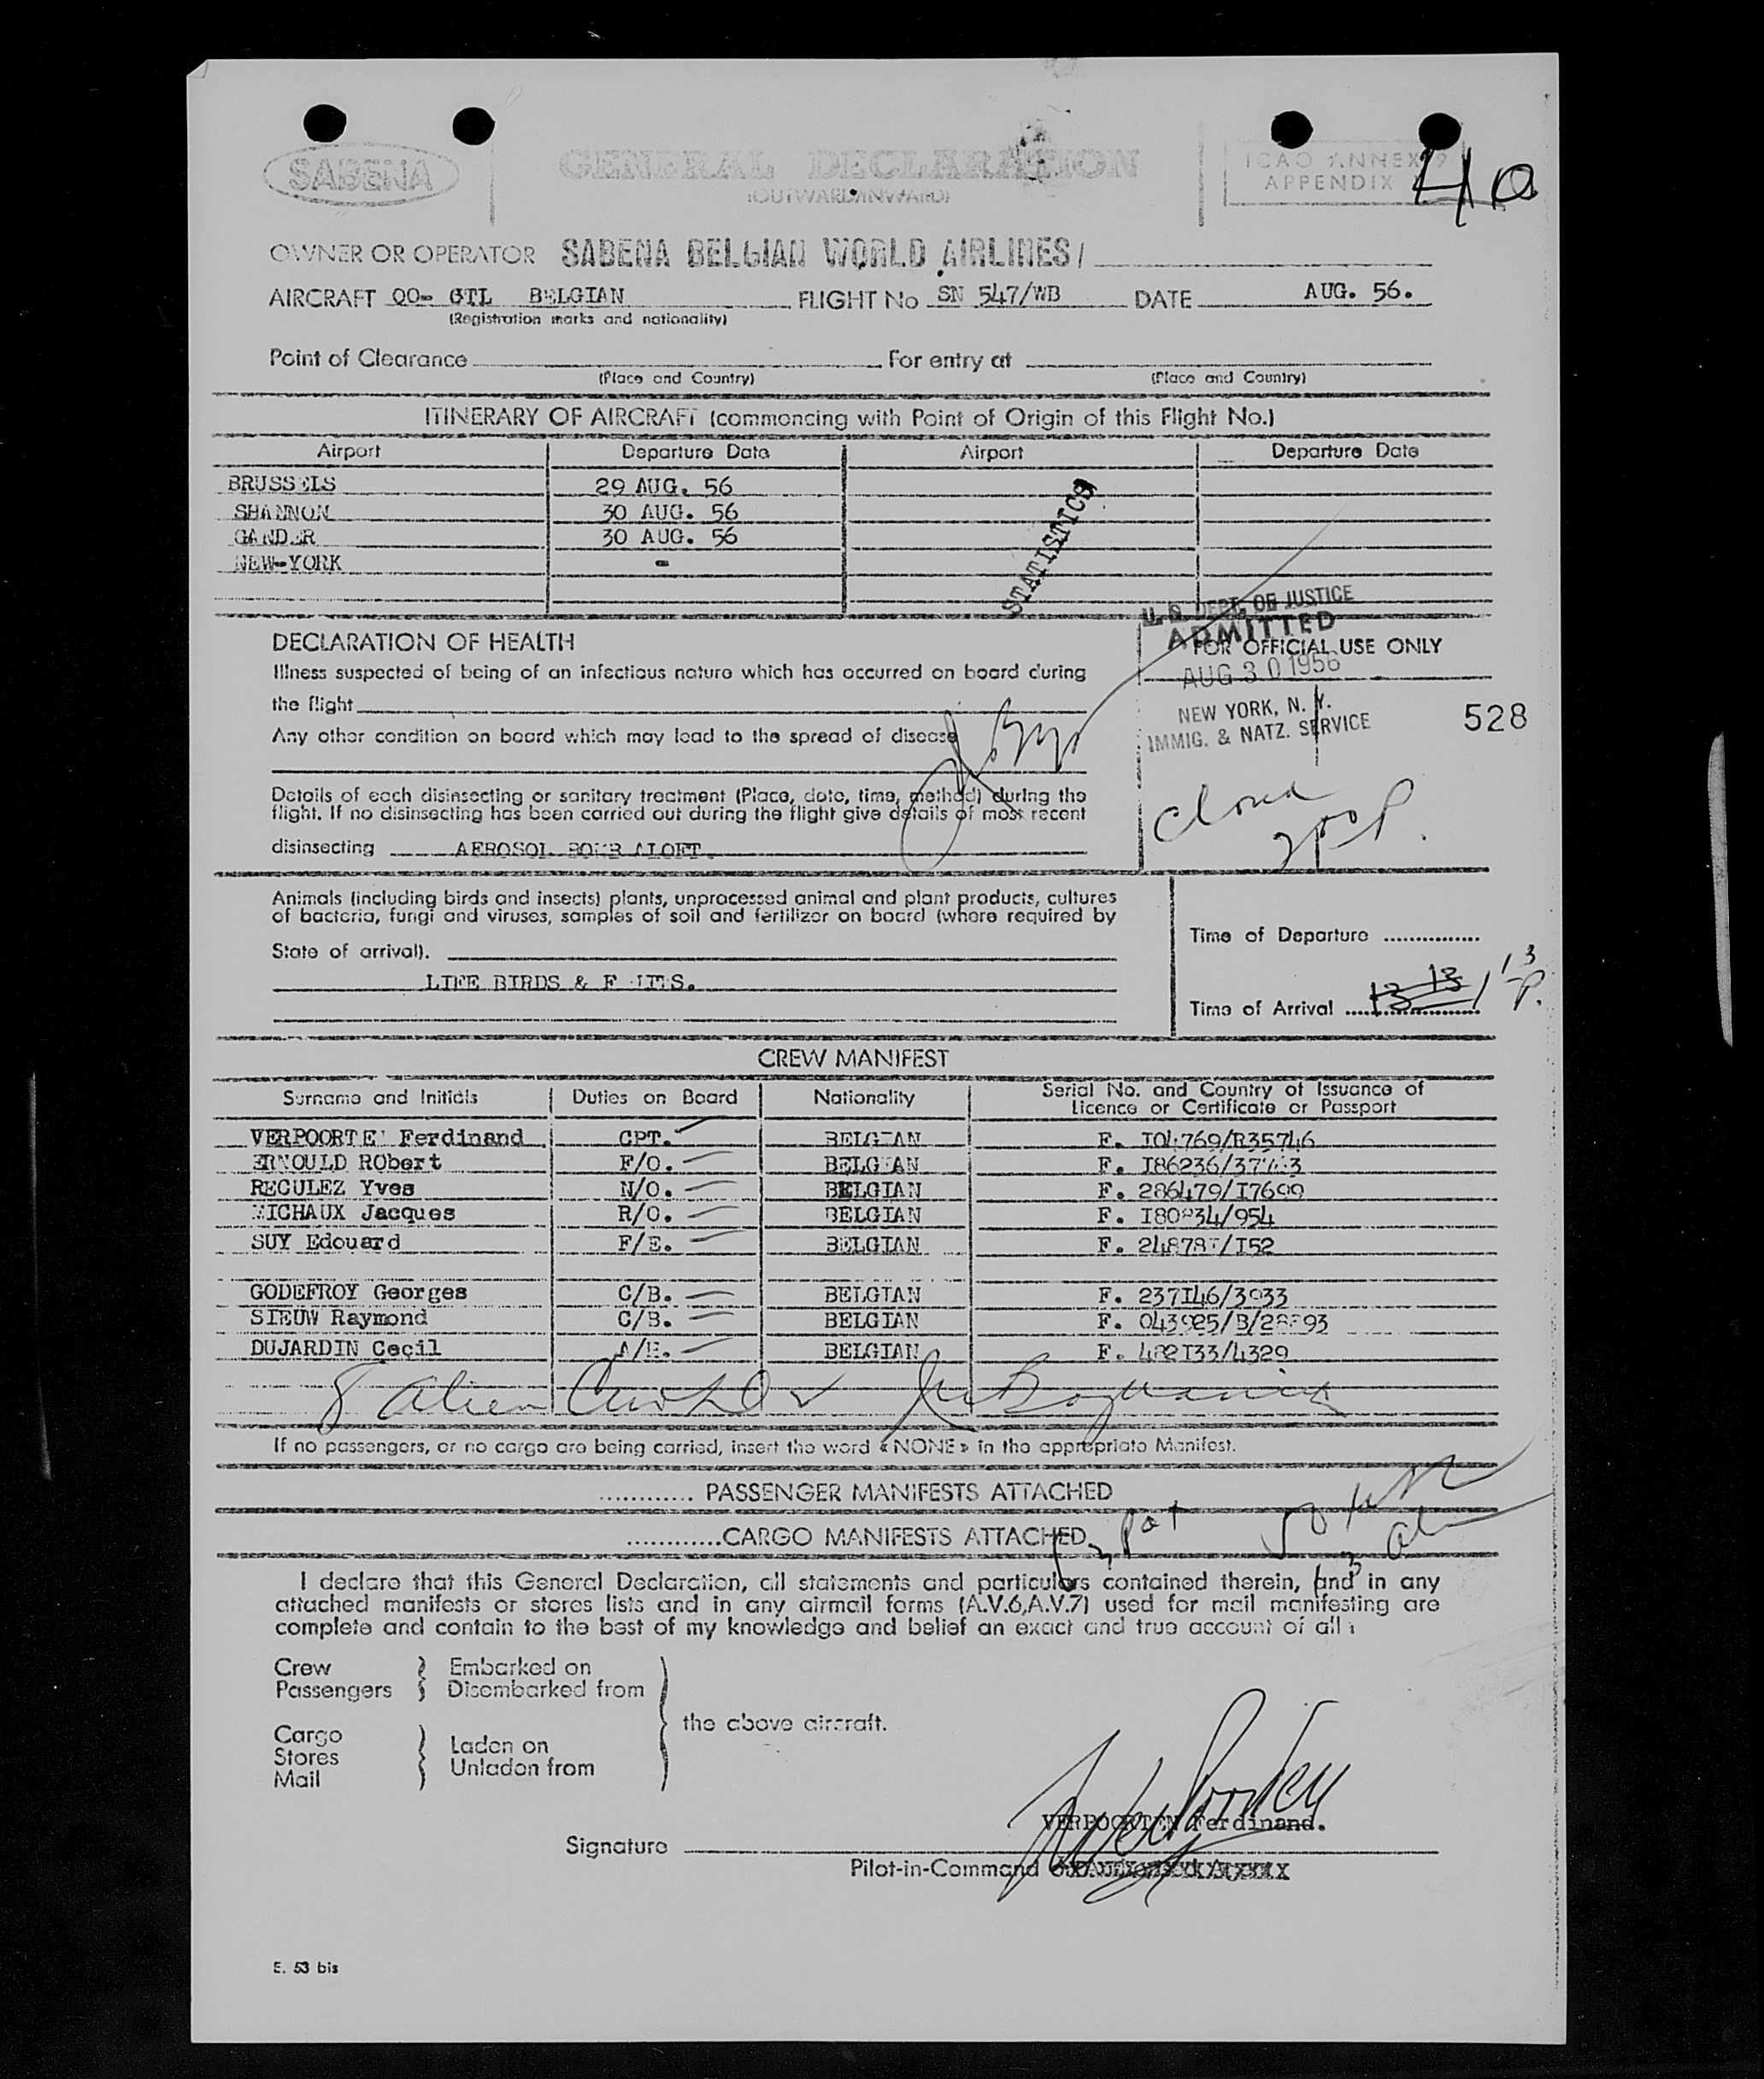 SABENA
GENERAL DECLARATION
(OUTWARD/INWARD)
ICAO ANNEX 9
APPENDIX
40
OWNER OR OPERATOR SABENA BELGIAN WORLD AIRLINES/
AIRCRAFT OO- GTL BELGIAN FLIGHT No SN 547/WB DATE AUG. 56.
(Registration marks and nationality)
Point of Clearance For entry at
(Place and Country) (Place and Country)
ITINERARY OF AIRCRAFT (commencing with Point of Origin of this Flight No.)
Airport Departure Date Airport Departure Date
BRUSSELS 29 AUG. 56
SHANNON 30 AUG. 56
GANDER 30 AUG. 56
NEW-YORK -
STATISTICS
U. S. DEPT. OF JUSTICE
ADMITTED
DECLARATION OF HEALTH
FOR OFFICIAL USE ONLY
AUG 30 1956
NEW YORK, N. Y.
IMMIG. & NATZ. SERVICE
528
Illness suspected of being of an infectious nature which has occurred on board during
the flight
Any other condition on board which may lead to the spread of disease
Details of each disinsecting or sanitary treatment (Place, date, time, method) during the
flight. If no disinsecting has been carried out during the flight give details of most recent
disinsecting AEROSOL BOMB ALOFT.
Animals (including birds and insects) plants, unprocessed animal and plant products, cultures
of bacteria, fungi and viruses, samples of soil and fertilizer on board (where required by
State of arrival).
LIFE BIRDS &
Time of Departure
Time of Arrival 13 13 1 13 P.
CREW MANIFEST
Surname and Initials Duties on Board Nationality Serial No. and Country of Issuance of
Licence or Certificate or Passport
VERPOORTEN Ferdinand CPT. BELGIAN F. I04769/R35746
ERNOULD RObert F/O. BELGIAN F. I86236/
RECULEZ Yves N/O. BELGIAN F. 286479/I7699
MICHAUX Jacques R/O. BELGIAN F. I80834/954
SUY Edouard F/E. BELGIAN F. 24878I/I52
GODEFROY Georges C/B. BELGIAN F. 237I46/3933
SIEUW Raymond C/B. BELGIAN F. 043925/B/28893
DUJARDIN Cecil A/H. BELGIAN F. 482I33/4329
8 Alien
If no passengers, or no cargo are being carried, insert the word « NONE » in the appropriate Manifest.
............ PASSENGER MANIFESTS ATTACHED
............CARGO MANIFESTS ATTACHED
I declare that this General Declaration, all statements and particulars contained therein, and in any
attached manifests or stores lists and in any airmail forms (A.V.6,A.V.7) used for mail manifesting are
complete and contain to the best of my knowledge and belief an exact and true account of all :
Crew
Passengers
Embarked on
Disembarked from
the above aircraft.
Cargo
Stores
Mail
Laden on
Unladen from
VERPOORTEN Ferdinand.
Signature
Pilot-in-Command
E. 53 bis